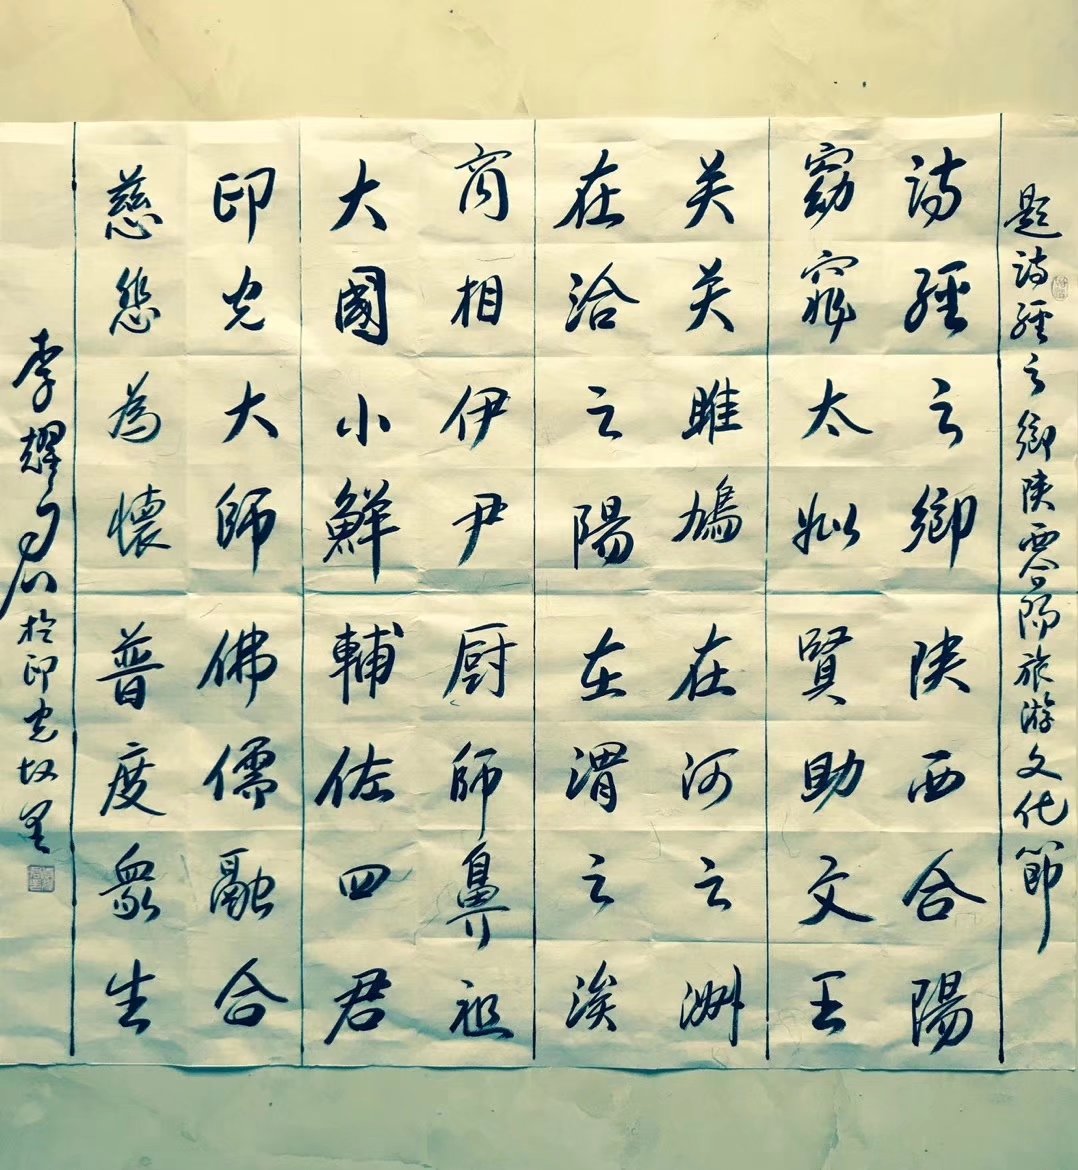 题诗經之鄉陕西合阳旅游文化節
诗經之鄉陕西合陽
窈窕太姒賢助文王
关关雎鳩在河之洲
在洽之陽在渭之涘
商相伊尹厨師鼻祖
大國小鮮輔佐四君
印光大師佛儒融合
慈悲為懷普度衆生
李耀於印光故里